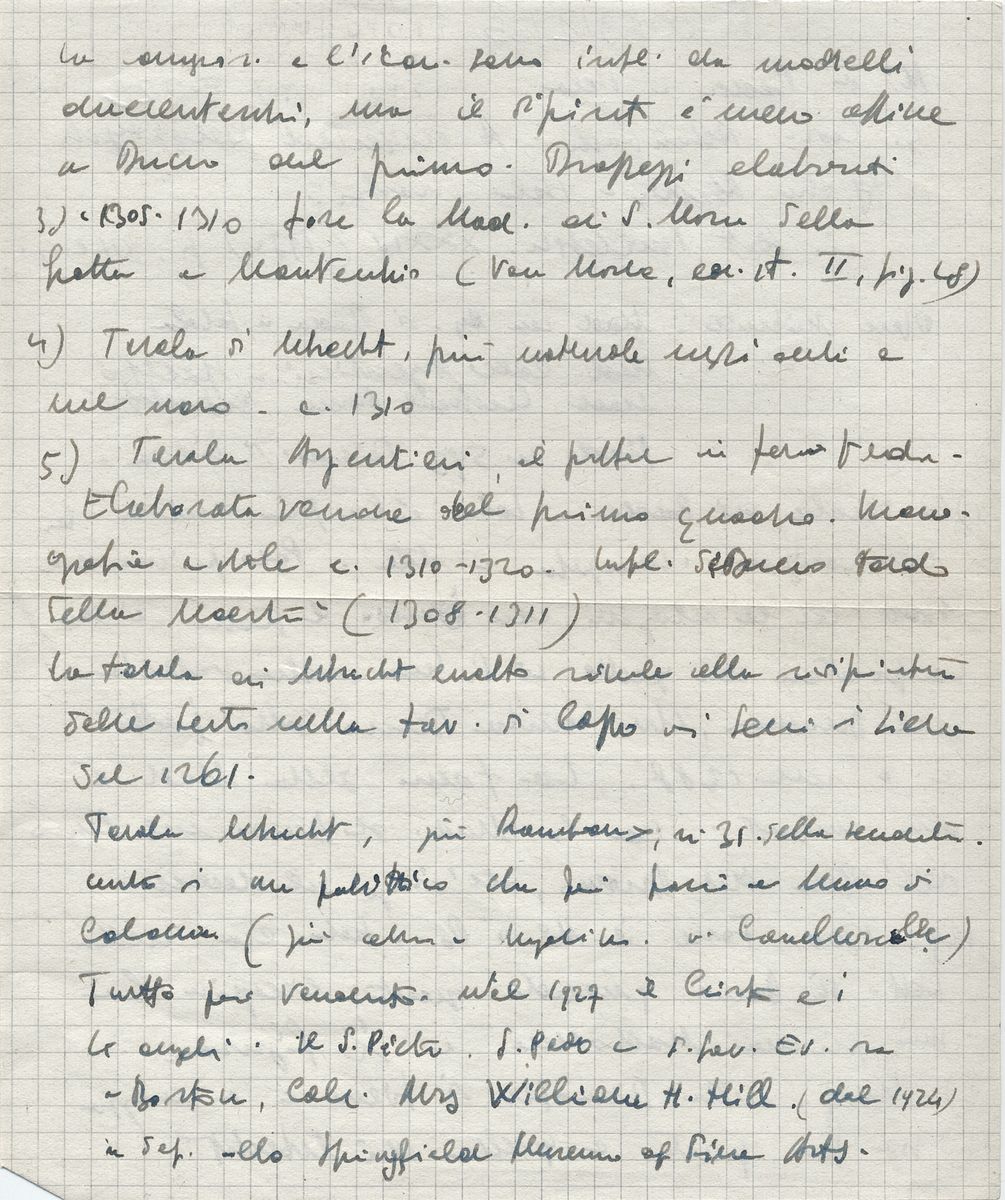 La compos. e l'icon. sono infl. da modelli
duecenteschi, ma il dipinto è meno affine
a Duccio del primo. Drappeggi elaborati
3) c 1305-1310 forse la Mad. di S. Maria della
grotta a Montecchio (Van Marle, ed. it. II, fig. 48)
4) Tavola di Utrecht, più naturale negli occhi e
nel naso - c. 1310
5) Tavola Argentieri, il pittore in
Elaborata versione del primo quadro. Icono-
grafia e stile c. 1310-1320. Infl. di Duccio tardo
della Maestà (1308-1311)
La tavola di Utrecht molto simile alla
delle teste nella tav. di Coppo ai Servi di Siena
del 1261.
Tavola Utrecht, già Ramboux, n 31. della
di un polittico che poi passò a Museo di
Colonia (già
Tutto poi venduto. Nel 1927 il Cristo e i
4 angeli. Il S. Pietro. S. Paolo e S. Giov. Ev. va
a Boston, Coll. Mrs William H. Hill. (dal 1924)
in dep. allo Springfield Museum of Fine Arts.